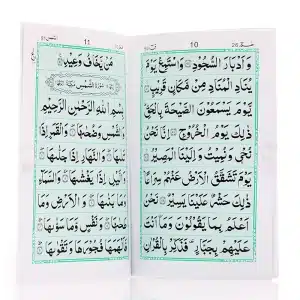 10
وَ اَدْبَارَ السُّجُوْدِ ۝ وَاسْتَمِعْ يَوْمَ
يُنَادِ الْمُنَادِ مِنْ مَّكَانٍ قَرِيْبٍ ۝
يَّوْمَ يَسْمَعُوْنَ الصَّيْحَةَ بِالْحَقِّ
ذٰلِكَ يَوْمُ الْخُرُوْجِ ۝ اِنَّا نَحْنُ
نُحْيٖ وَنُمِيْتُ وَ اِلَيْنَا الْمَصِيْرُ ۝
يَوْمَ تَشَقَّقُ الْاَرْضُ عَنْهُمْ سِرَاعًا
ذٰلِكَ حَشْرٌ عَلَيْنَا يَسِيْرٌ ۝ نَحْنُ
اَعْلَمُ بِمَا يَقُوْلُوْنَ وَمَاۤ اَنْتَ
عَلَيْهِمْ بِجَبَّارٍ فَذَكِّرْ بِالْقُرْاٰنِ
11
مَنْ يَّخَافُ وَعِيْدِ ۝
سُوْرَةُ الشَّمْسِ مَكِّيَّةٌ
بِسْمِ اللّٰهِ الرَّحْمٰنِ الرَّحِيْمِ
وَالشَّمْسِ وَضُحٰىهَا ۝ وَالْقَمَرِ اِذَا
تَلٰىهَا ۝ وَالنَّهَارِ اِذَا جَلّٰىهَا ۝
وَالَّيْلِ اِذَا يَغْشٰىهَا ۝ وَالسَّمَآءِ
وَمَا بَنٰىهَا ۝ وَالْاَرْضِ وَمَا
طَحٰىهَا ۝ وَنَفْسٍ وَّمَا سَوّٰىهَا ۝
فَاَلْهَمَهَا فُجُوْرَهَا وَتَقْوٰىهَا ۝